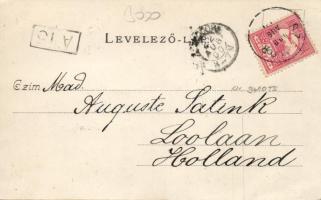 LEVELEZŐ-L
A 10
Czim: Mad.
Auguste Satink
Loolaan
Holland